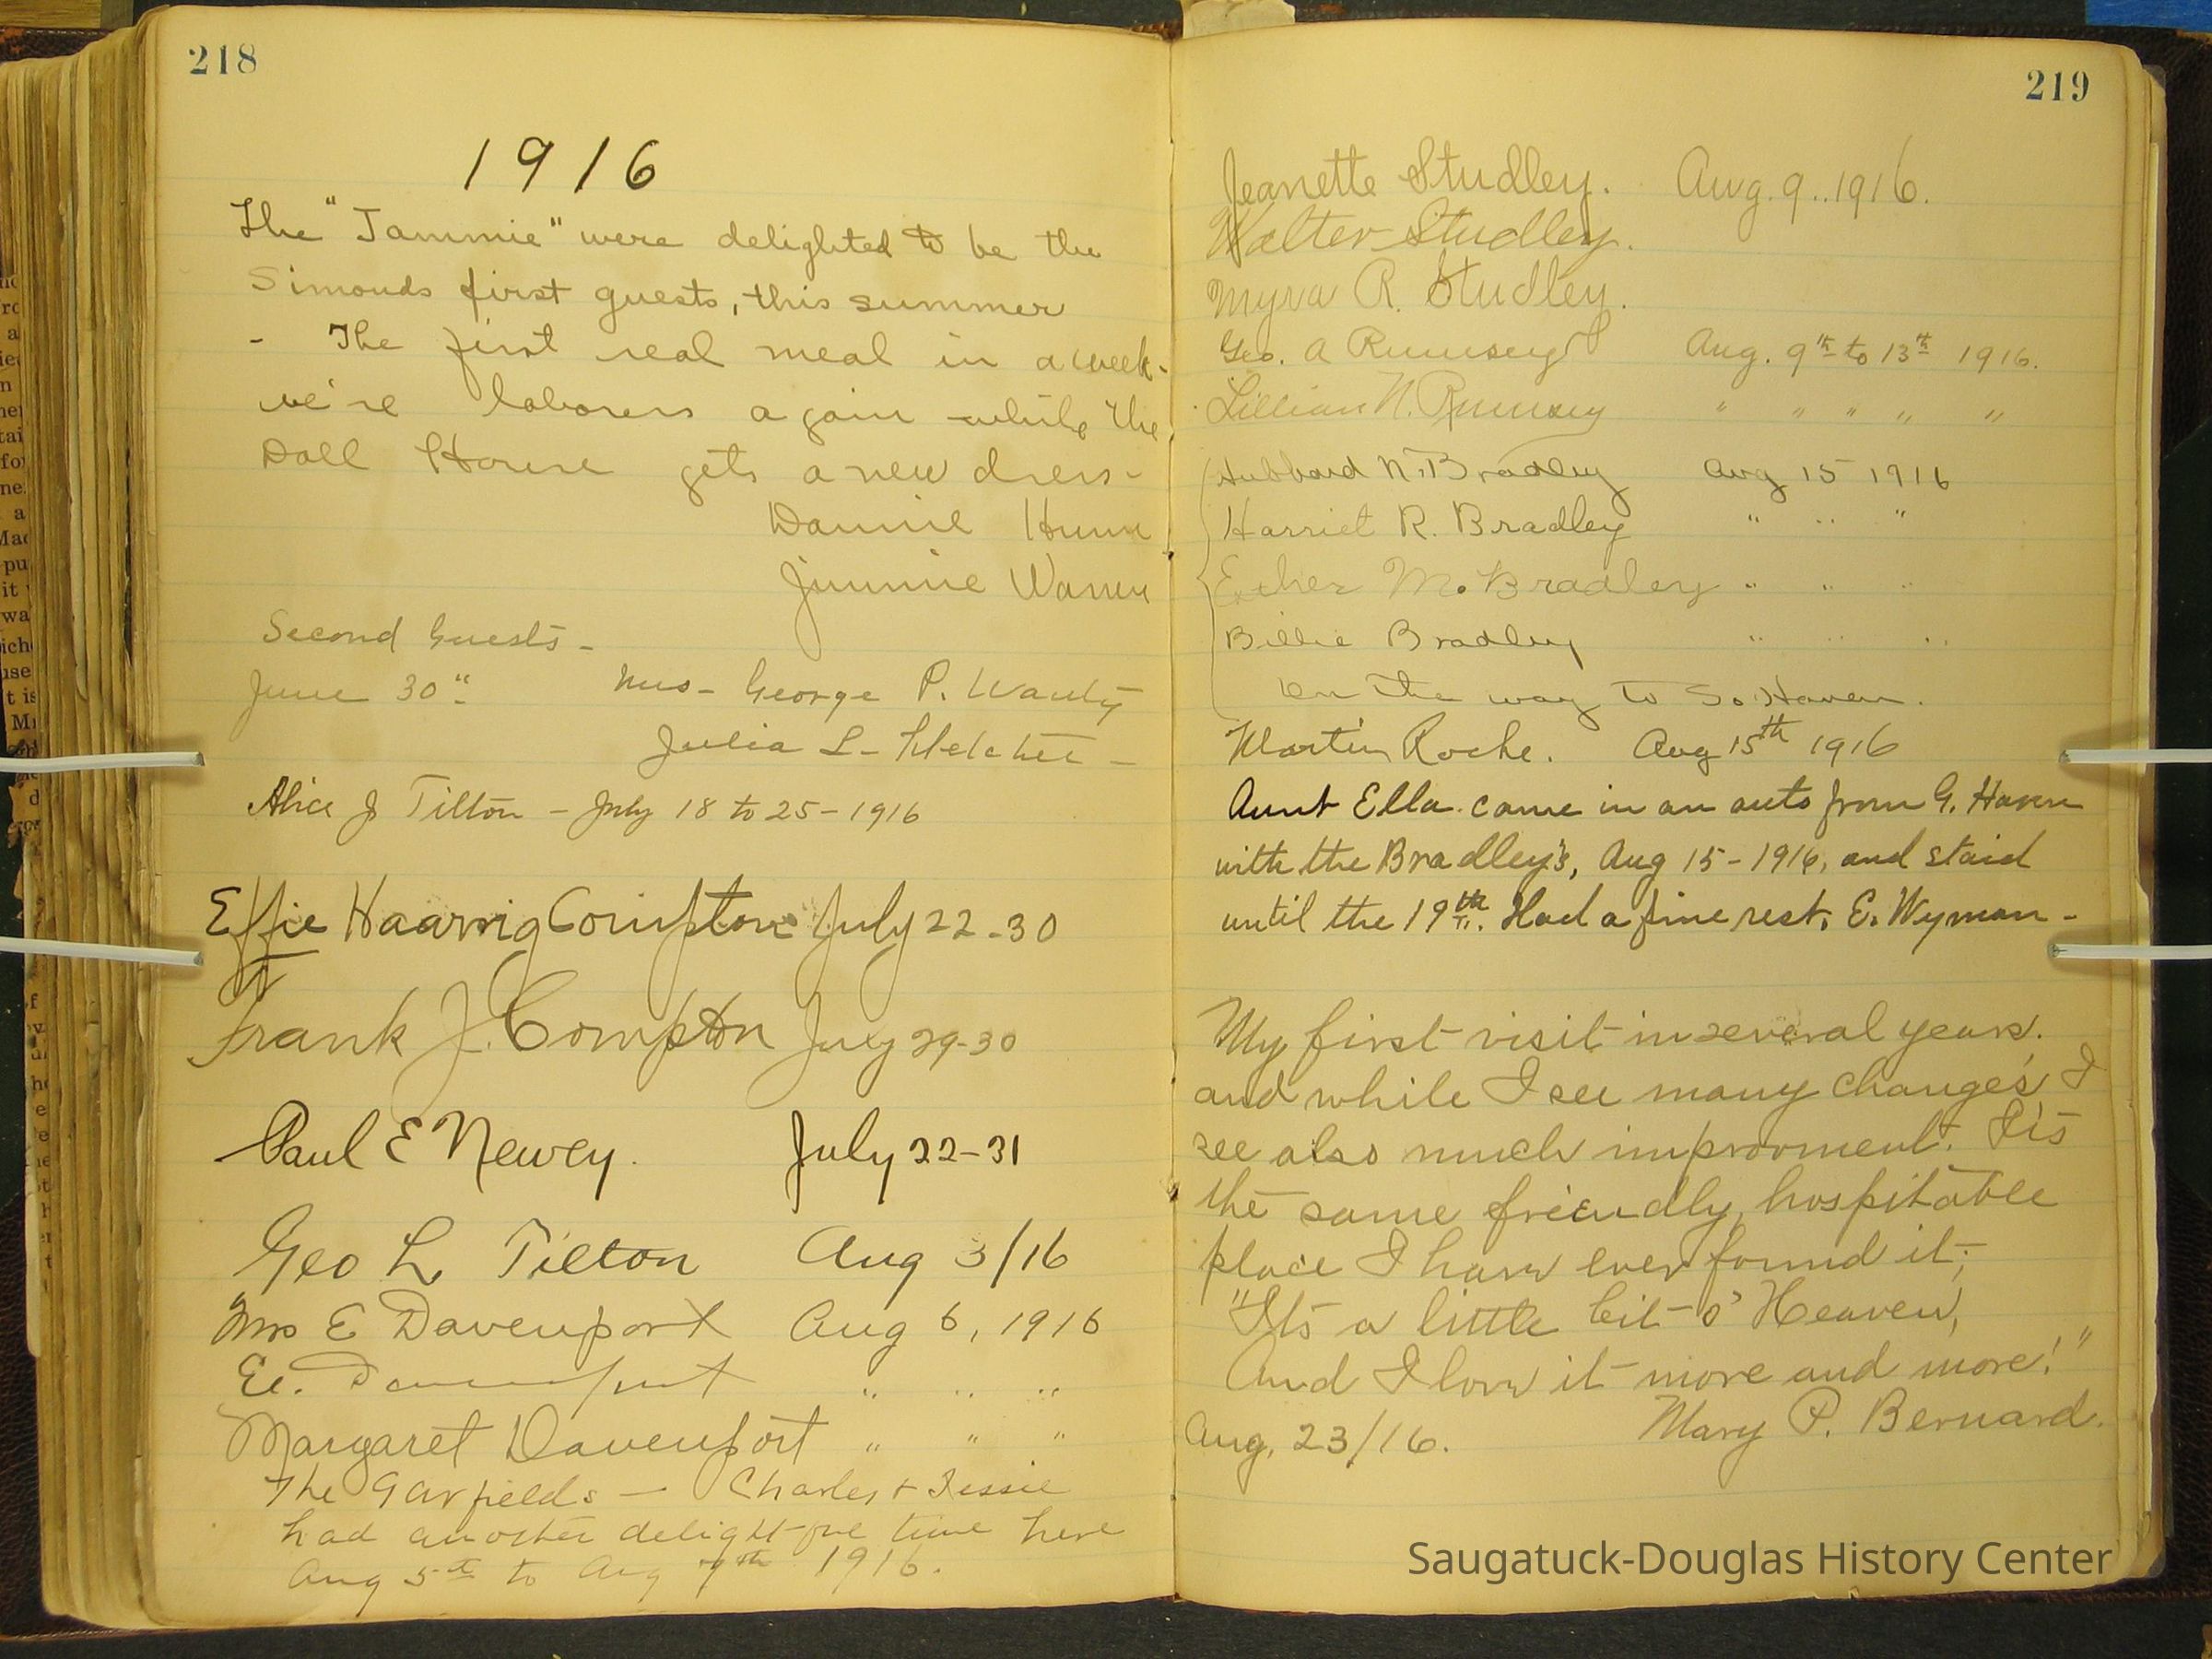 218
1916
The "Jammie" were delighted to be the
Simonds first guests, this summer
- The first real meal in a week-
we're laborers again while the
Doll House gets a new dress-
Dannie
Jimmie Warren
Second Guests -
June 30th Mrs- George P. Wanty
Julia L. Fletcher -
Alice J Tilton - July 18 to 25 - 1916
Effie Haarvig Compton July 22-30
Frank J. Compton July 29-30
Paul E Newey. July 22-31
Geo L Tilton Aug 3/16
Mrs E Davenport Aug 6, 1916
Ed. Davenport " " "
Margaret Davenport " " "
The Garfields — Charles + Jessie
had another delightful time here
Aug 5th to Aug 7th 1916.
219
Jeanette Studley. Aug. 9..1916.
Walter Studley.
Myra R. Studley.
Geo. A Rumsey Aug. 9th to 13th 1916.
Lillian N. Rumsey " " " " "
Hubbard N. Bradley Aug 15 1916
Harriet R. Bradley " " "
Esther M. Bradley " " "
Billie Bradley " " "
On the way to So Haven.
Martin Roche. Aug 15th 1916
Aunt Ella came in an auto from G. Haven
with the Bradley's, Aug 15-1916, and staid
until the 19th. Had a fine rest. E. Wyman -
My first visit in several years.
and while I see many changes, I
see also much improvment. It's
the same friendly, hospitable
place I have ever found it;
"It's a little bit o' Heaven,
And I love it more and more!"
Aug. 23/16. Mary P. Bernard.
Saugatuck-Douglas History Center